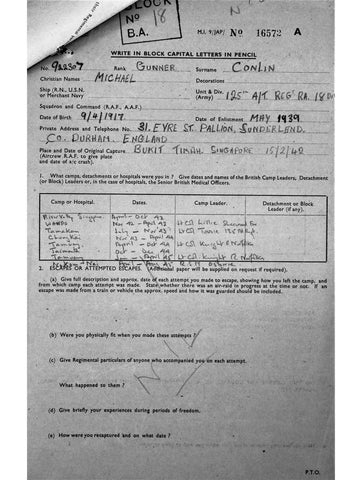 BLOCK
No 18
B.A.
M.I. 9/JAP/ No 16572 A
WRITE IN BLOCK CAPITAL LETTERS IN PENCIL
No. 922307 Rank GUNNER Surname CONLIN
Christian Names MICHAEL Decorations
Ship (R.N., U.S.N. or Merchant Navy) Unit & Div. (Army) 125th A/T REG' RA. 18 DIV
Squadron and Command (R.A.F., A.A.F.)
Date of Birth 9/4/1917 Date of Enlistment MAY 1939
Private Address and Telephone No. 31. EYRE ST. PALLION, SUNDERLAND.
CO. DURHAM. ENGLAND
Place and Date of Original Capture BUKIT TIMAH. SINGAPORE 15/2/42
(Aircrew R.A.F. to give place
and date of a/c crash)
1. What camps, detachments or hospitals were you in ? Give dates and names of the British Camp Leaders, Detachment
(or Block) Leaders or, in the case of hospitals, the Senior British Medical Officers.
Camp or Hospital. Dates. Camp Leader. Detachment or Block Leader (if any).
April - Oct 42 Lt Col
Nov 42 - April 43
Tamarkan July - Nov 43 Lt Col Toosie
Chungkai Nov 43 - April 44
April - Oct 44 Lt Col Knights R Norfolks
Oct - Dec 44
Jan - April 45 Lt Col Knights R Norfolks
2. ESCAPES OR ATTEMPTED ESCAPES. (Additional paper will be supplied on request if required).
(a) Give full description and approx. date of each attempt you made to escape, showing how you left the camp, and
from which camp each attempt was made. State whether there was an air-raid in progress at the time or not. If an
escape was made from a train or vehicle the approx. speed and how it was guarded should be included.
(b) Were you physically fit when you made these attempts ?
(c) Give Regimental particulars of anyone who accompanied you on each attempt.
What happened to them ?
(d) Give briefly your experiences during periods of freedom.
(e) How were you recaptured and on what date ?
P.T.O.